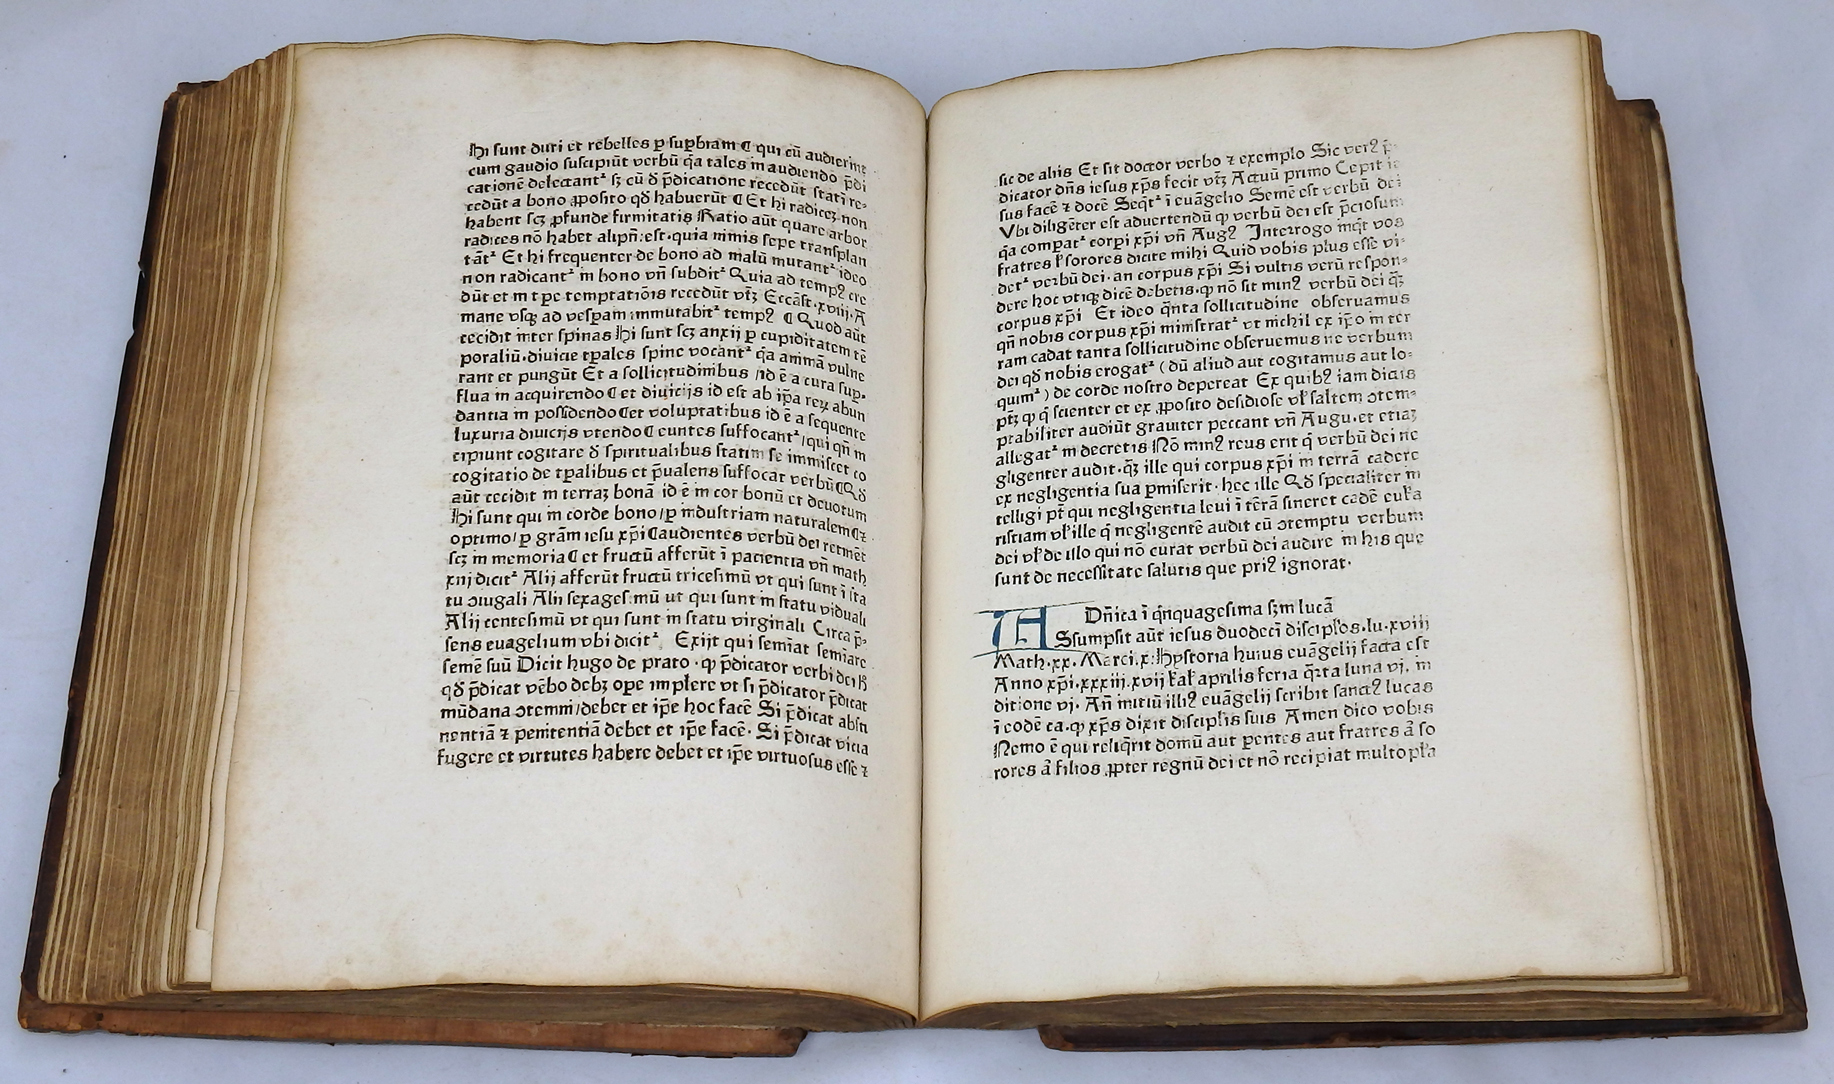 Hi sunt duri et rebelles ꝑ suꝑbiam ¶ qui cū audierint
cum gaudio suscipiūt verbū q̄a tales in audiendo p̄di
catione delectantᷣ sꝫ cū ð p̄dicatione recedūt statī re⸗
cedūt a bono ꝓposito qð habuerūt ¶ Et hi radiceꝫ non
habent scꝫ ꝓfunde firmitatis Ratio aūt quare arbor
radices nō habet alipn̄:est.quia nimis sepe transplan
tātᷣ Et hi frequenter de bono ad malū mutantᷣ ideo
non radicantᷣ in bono vn̄ subditᷣ Quia ad tempꝰ cre
dūt et in tpe temptatiōis recedūt vtꝫ Eccāst.xviij.A
mane vsqꝫ ad vesꝑam immutabitᷣ tempꝰ ¶ Quod aūt
cecidit inter spinas Hi sunt scꝫ anxij ꝑ cupiditatem tē
poraliū.diuicie tꝑales spine vocantᷣ q̄a animā vulne
rant et pungūt Et a sollicitudinibus /id ē a cura suꝑ⸗
flua in acquirendo ¶ et diuicijs id est ab ip̄a reꝝ abun
dantia in possidendo ¶ et voluptatibus id ē a sequente
luxuria diuicijs vtendo ¶ euntes suffocantᷣ /qui qn̄ in
cipiunt cogitare ð spiritualibus statim se immiscet co
cogitatio de tꝑalibus et p̄ualens suffocat verbū ¶ Qð
aūt cecidit in terraꝫ bonā id ē in cor bonū et deuotum
Hi sunt qui in corde bono/ꝑ industriam naturalem ¶ ⁊
optimo/ꝑ grām iesu xp̄i ¶ audientes verbū dei retinēt
scꝫ in memoria ¶ et fructū afferūt ī pacientia vn̄ math
xiij dicitᷣ Alij afferūt fructū tricesimū vt qui sunt ī sta
tu ↄiugali Alii sexagesimū ut qui sunt in statu viduali
Alij centesimū vt qui sunt in statu virginali Circa p̄⸗
sens euagelium vbi dicitᷣ Exijt qui semīat semiare
semē suū Dicit hugo de prato ·ꝙ p̄dicator verbi dei ħ
qð p̄dicat v̄bo debꝫ oꝑe implere vt si p̄dicator p̄dicat
mūdana ↄtemni/debet et ip̄e hoc facē Si p̄dicat absti
nentiā ⁊ penitentiā debet et ip̄e facē· Si p̄dicat vicia
fugere et virtutes habere debet et ip̄e virtuosus esse ⁊
sic de aliis Et sit doctor verbo ⁊ exemplo Sic verꝰ p̄⸗
dicator dn̄s iesus xp̄s fecit vtꝫ Actuū primo Cepit ie
sus facē ⁊ docē Seq̄tᷣ ī euāgelio Semē est verbū dei
Vbi diligēter est aduertendū ꝙ verbū dei est p̄ciosum
q̄a compatᷣ corpi xp̄i vn̄ Augꝰ Interrogo inq̄t vos
fratres ł sorores dicite mihi Quid vobis plus esse vi⸗
detᷣ verbū dei·an corpus xp̄i Si vultis verū respon⸗
dere hoc vtiqꝫ dicē debetis.ꝙ nō sit minꝰ verbū dei q̄ꝫ
corpus xp̄i Et ideo q̄nta sollicitudine obseruamus
qn̄ nobis corpus xp̄i ministratᷣ vt nichil ex ip̄o in ter
ram cadat tanta sollicitudine obseruemus ne verbum
dei qð nobis erogatᷣ ( dū aliud aut cogitamus aut lo⸗
quimᷣ ) de corde nostro depereat Ex quibꝰ iam dictis
ptꝫ ꝙ q̄ scienter et ex ꝓposito desidiose vł saltem ↄtem⸗
ptabiliter audiūt grauiter peccant vn̄ Augu.et etiaꝫ
allegatᷣ in decretis Nō minꝰ reus erit q̄ verbū dei ne
gligenter audit·q̄ꝫ ille qui corpus xp̄i in terrā cadere
ex negligentia sua ꝑmiserit· hec ille Qð specialiter in
telligi pt̄ qui negligentia leui ī t̄rā sineret cadē euka
ristiam vł ille q̄ negligentē audit cū ↄtemptu verbum
dei vł de illo qui nō curat verbū dei audire in his que
sunt de necessitate salutis que priꝰ ignorat·
Dn̄ica ī q̄nquagesima sꝫm lucā
ASsumpsit aūt iesus duodecī discipłos.lu.xviij
Math.xx. Marci.x: Hystoria huius euāgelij facta est
Anno xp̄i.xxxiij.xvij kał aprilis feria q̄rta luna vj. in
ditione vj. An̄ initiū illiꝰ euāgelij scribit sanctꝰ lucas
ī eodē ca.ꝙ xp̄s dixit disciplis suis Amen dico vobis
Nemo ē qui reliq̄rit domū aut ꝑentes aut fratres āt so
rores āt filios ꝓpter regnū dei et nō recipiat multo pła